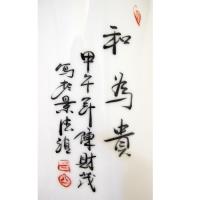 和為貴
甲午年陳財茂
寫於景德鎮